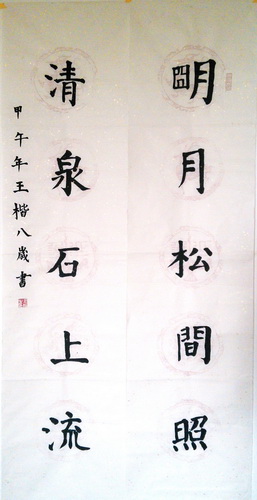 明月松間照
清泉石上流
甲午年王楷八歲書